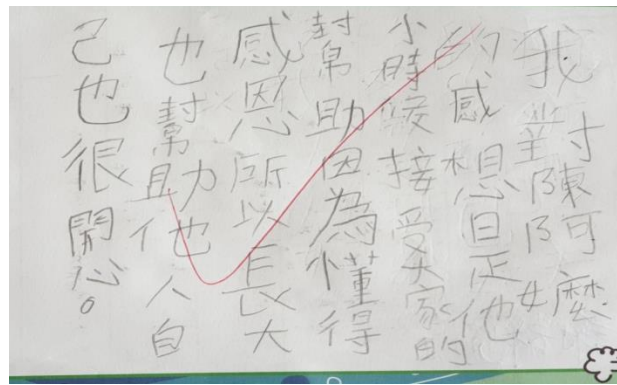 我對陳阿嬤
的感想是他
小時候接受大家的
幫助因為懂得
感恩所以長大
也幫助他人自
己也很開心。